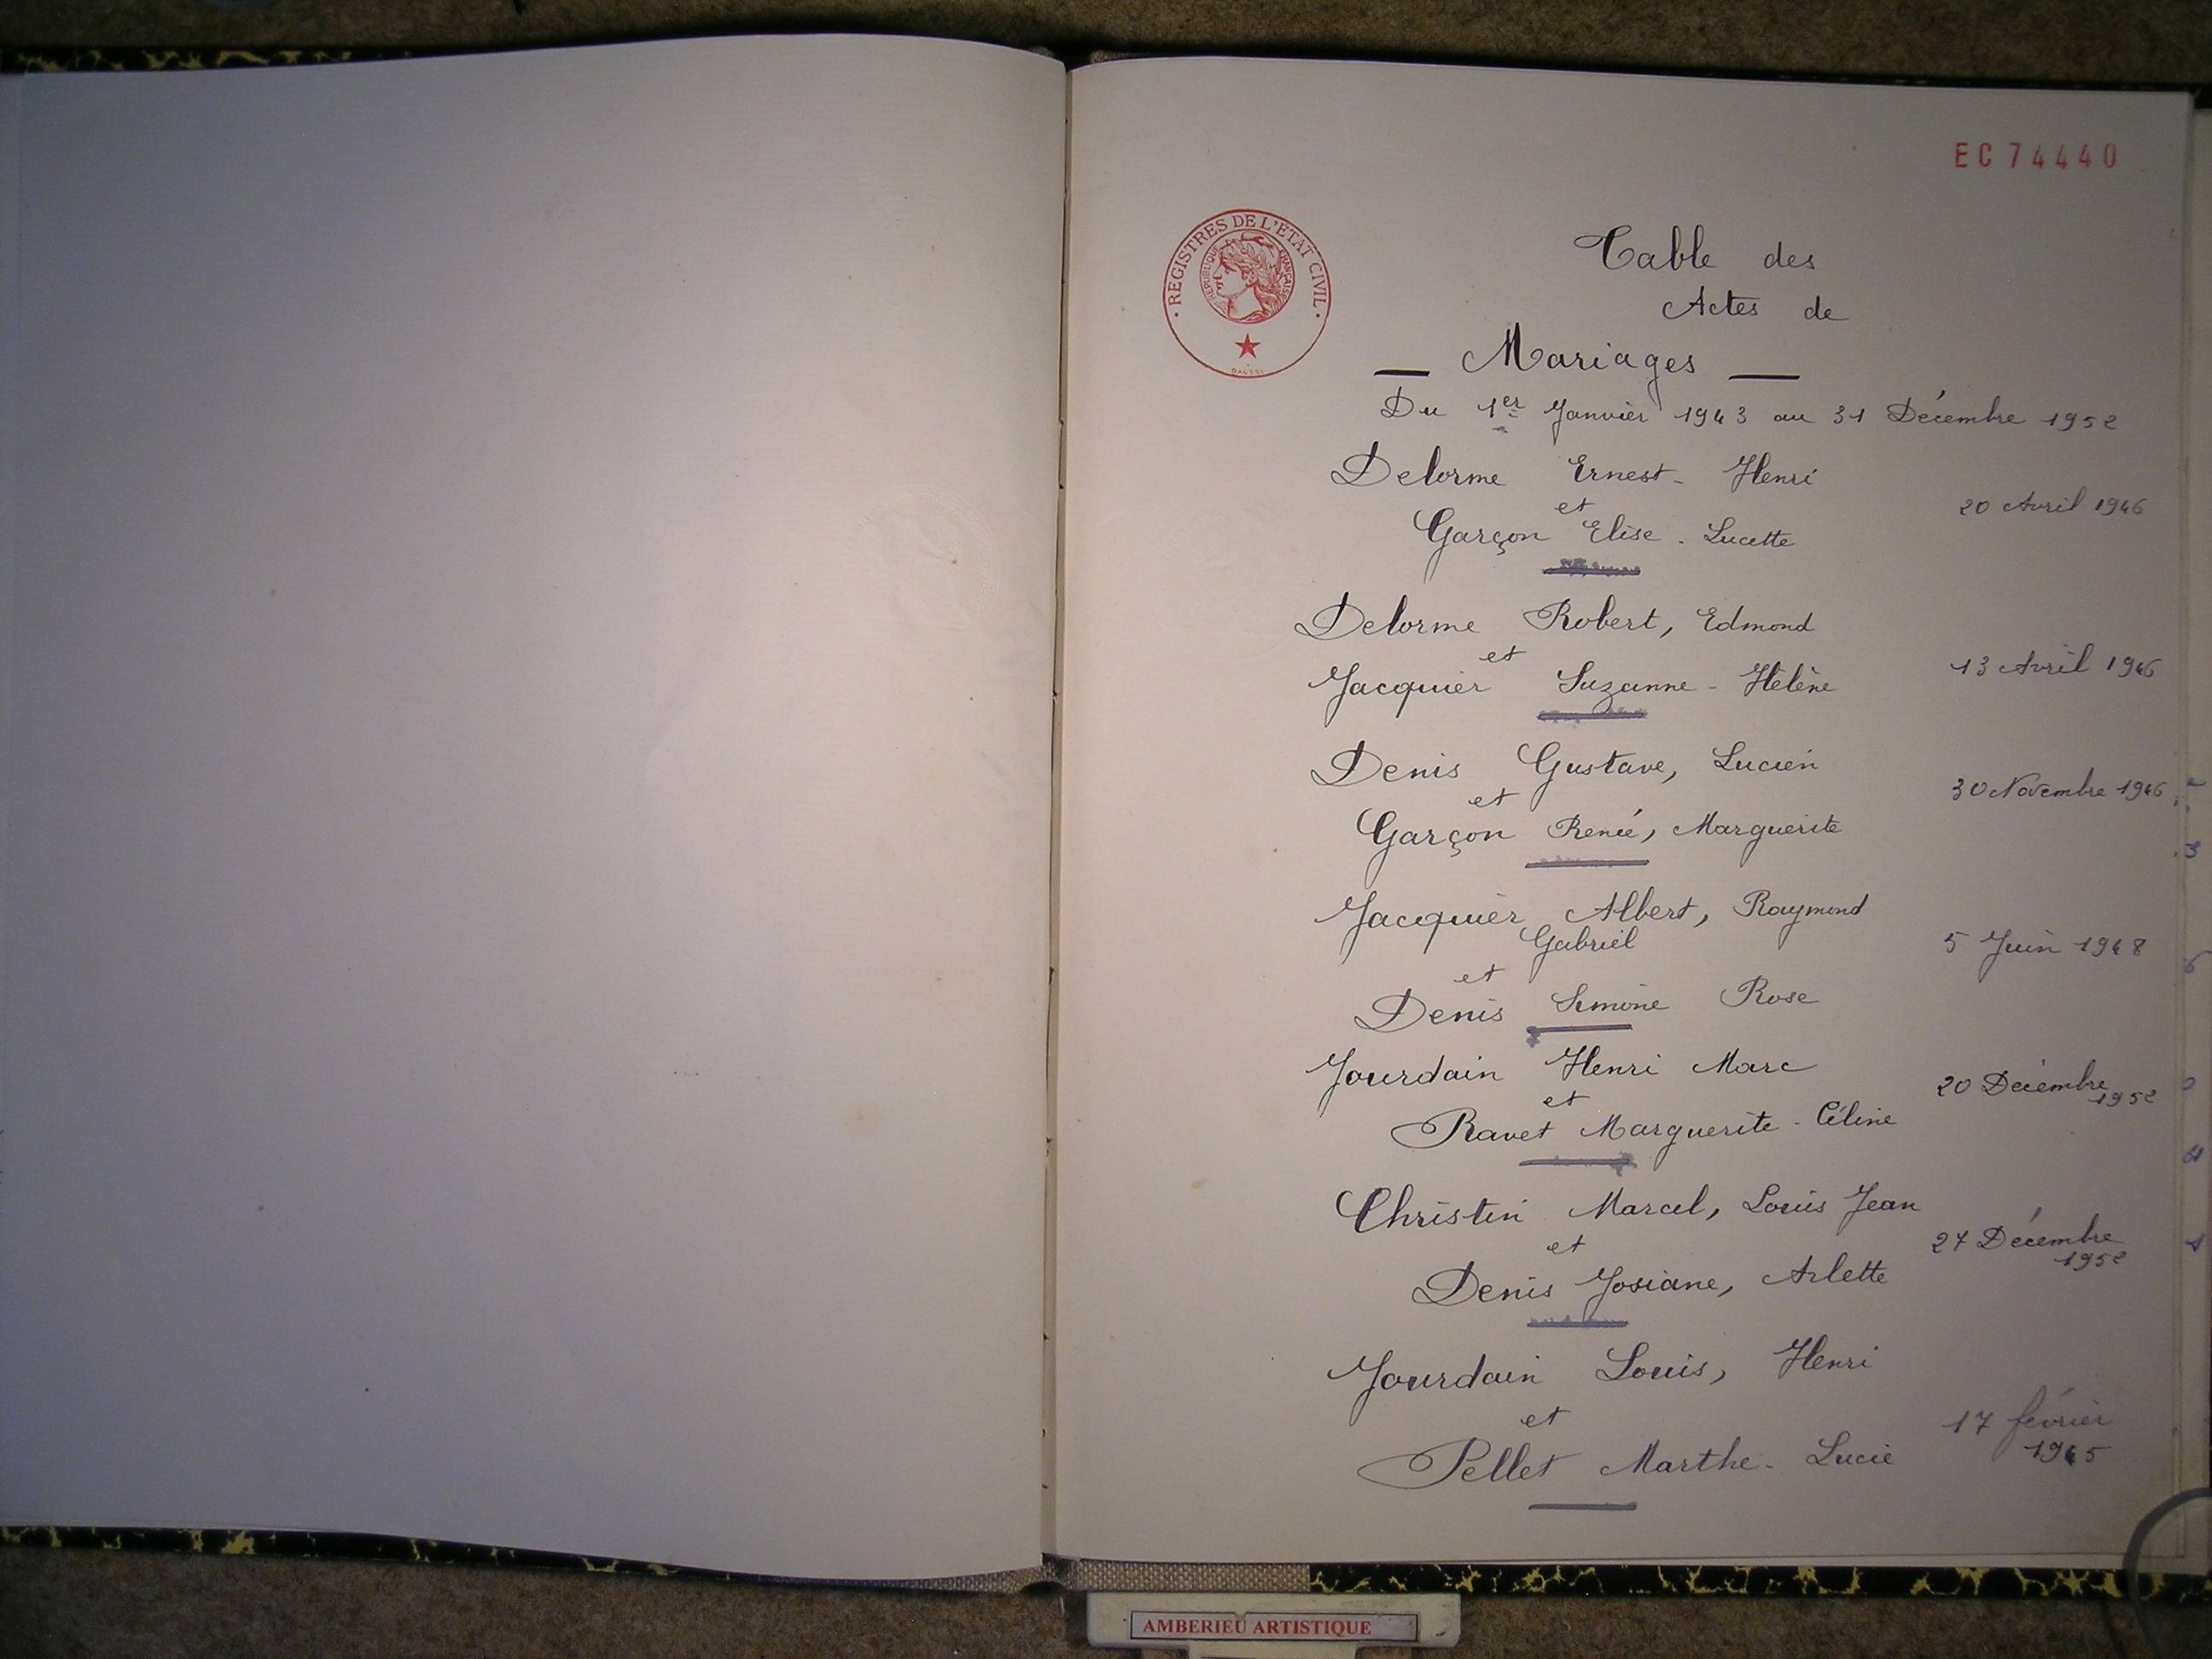 EC 74440
REGISTRES DE L'ETAT CIVIL
REPUBLIQUE FRANÇAISE
Table des
Actes de
Mariages
Du 1er Janvier 1943 au 31 Décembre 1952
Delorme Ernest - Henri
et
20 Avril 1946
Garçon Elise - Lucette
Delorme Robert, Edmond
et
13 Avril 1946
Jacquier Suzanne - Hélène
Denis Gustave, Lucien
et
30 Novembre 1946
Garçon Renée, Marguerite
Jacquier Albert, Raymond
Gabriel
5 Juin 1948
et
Denis Simone Rose
Jourdain Henri Marc
et
20 Décembre
1952
Ravet Marguerite - Céline
Christin Marcel, Louis Jean
et
27 Décembre
1952
Denis Josiane, Arlette
Jourdain Louis, Henri
et
17 février
1945
Pellet Marthe - Lucie
AMBERIEU ARTISTIQUE